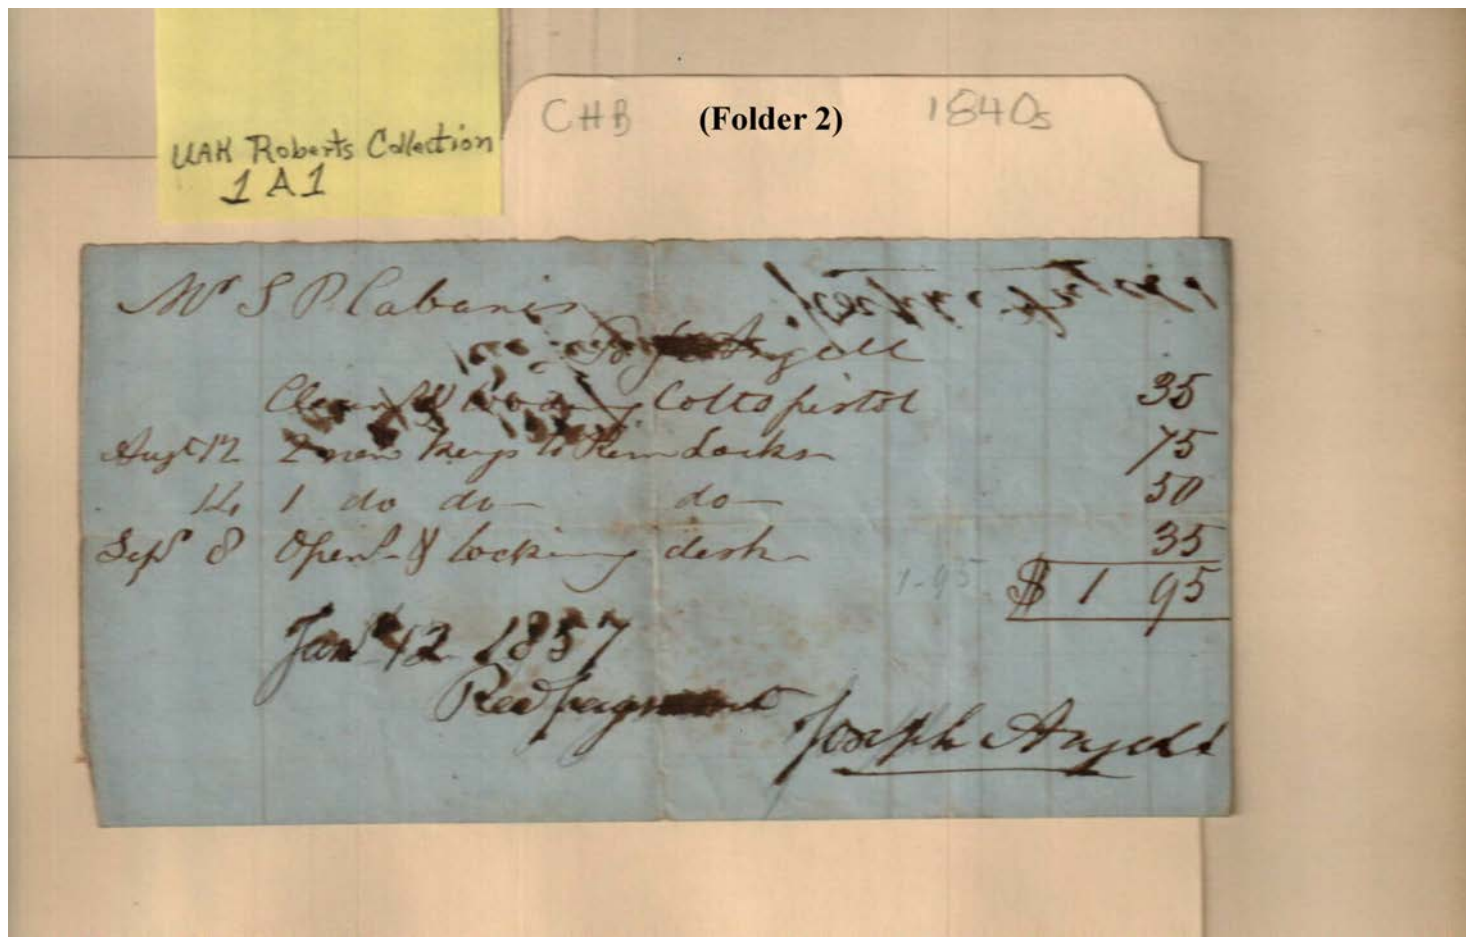 UAH Roberts Collection
1 A 1
CHB (Folder 2) 1840s
Mr S P Cabanis
Angell
Colts pistol 35
Augt 12 2 new keys to Rim Locks 75
14 1 do do do 50
Sept 8 Opend & locking desk 35
1-95 $ 1 95
Jany 12 1857
Recd payment
Joseph Angell